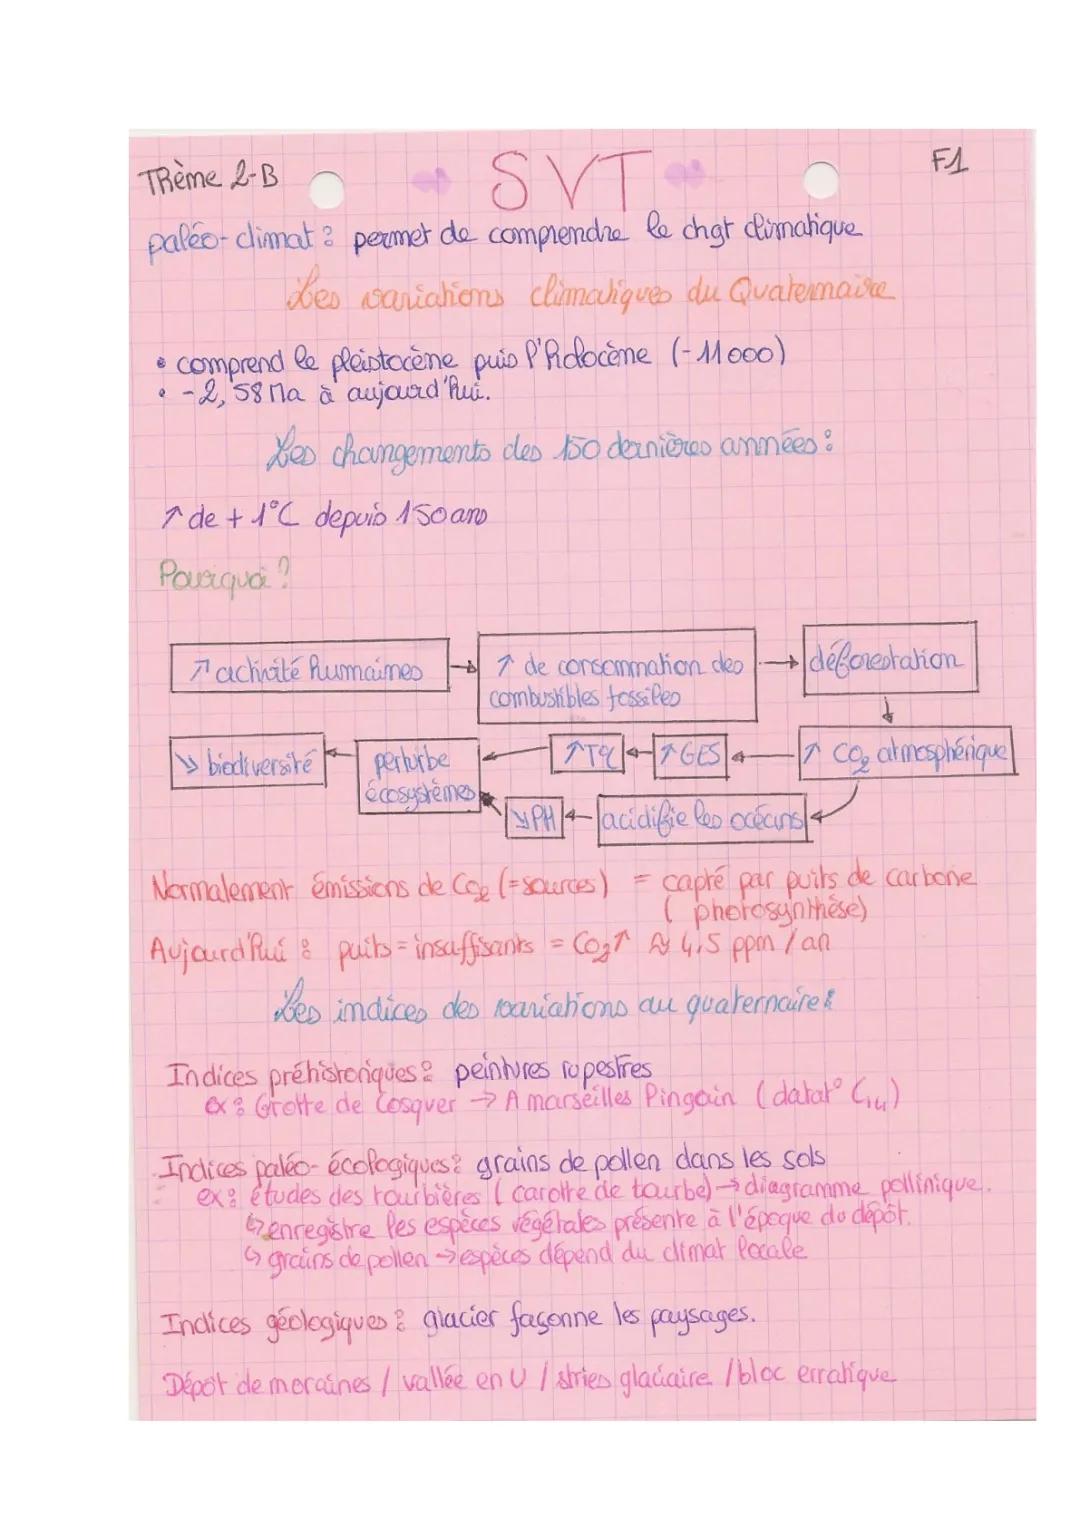 Thème 2-B
SVT
F1
paléo-climat : permet de comprendre le chgt climatique
Les variations climatiques du Quaternaire
• comprend le pleistocène puis l'holocène (-11000)
• -2,58 Ma à aujourd'hui.
Les changements des 150 dernières années :
↗ de + 1°C depuis 150 ans
Pourquoi ?
↗ activité humaines → ↗ de consommation des → déforestation
combustibles fossiles
↘ biodiversité ← perturbe ← ↗ T°C ← ↗ GES ← ↗ CO2 atmosphérique
écosystèmes
↘ PH ← acidifie les océans
Normalement émissions de CO2 (= sources) = capté par puits de carbone
( photosynthèse)
Aujourd'hui : puits = insuffisants = CO2 ↑ ≈ 4,5 ppm / an
Les indices des variations au quaternaire :
Indices préhistoriques : peintures rupestres
ex : Grotte de Cosquer → A marseilles Pingoin (datat° C14)
Indices paléo-écologiques : grains de pollen dans les sols
ex : études des tourbières ( carotte de tourbe) → diagramme pollinique.
↳ enregistre les espèces végétales présente à l'époque du dépôt.
↳ grains de pollen → espèces dépend du climat locale
Indices géologiques : glacier façonne les paysages.
Dépôt de moraines / vallée en U / stries glaciaire / bloc erratique